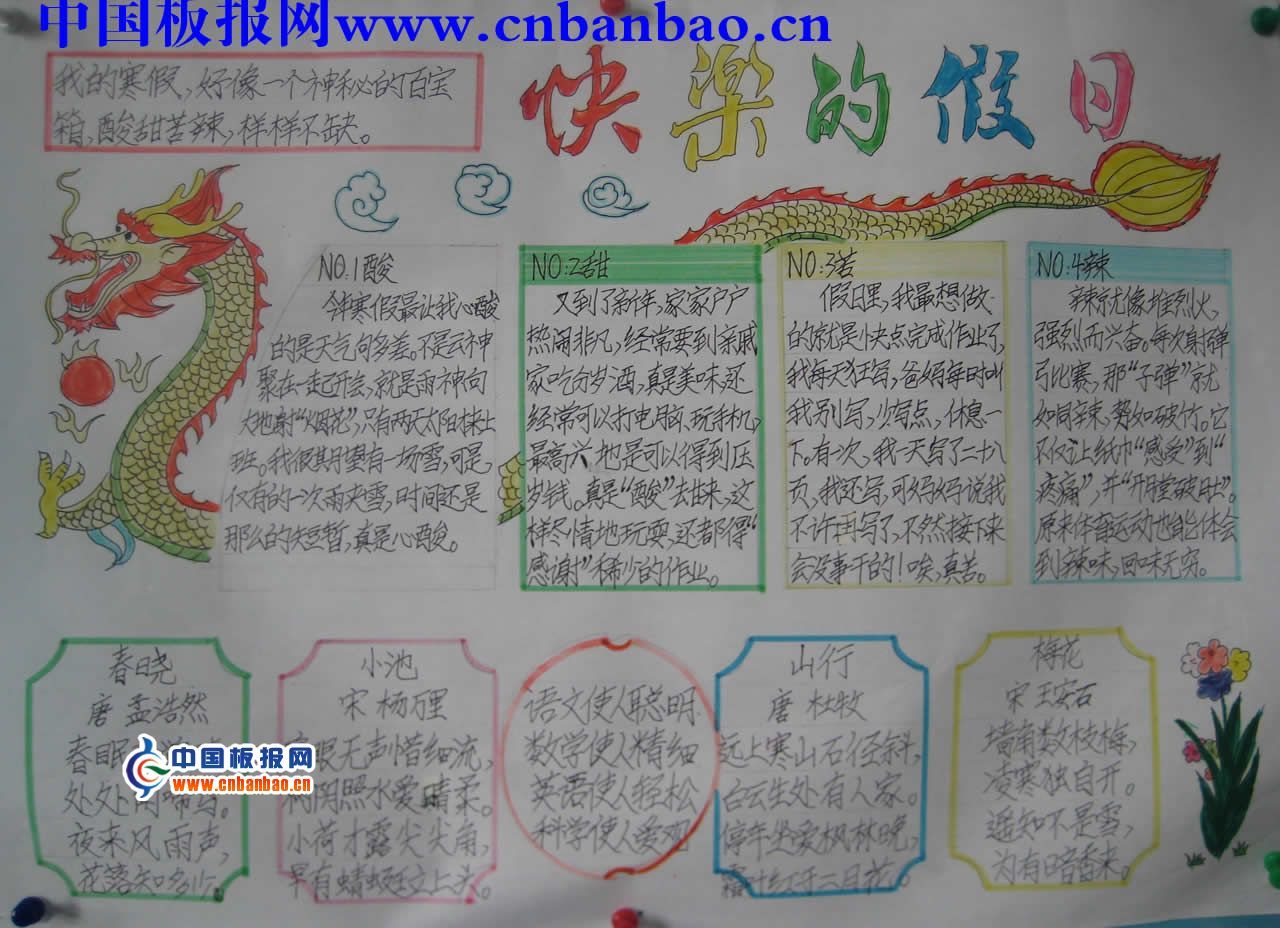 中国板报网www.cnbanbao.cn
快乐的假日
我的寒假,好像一个神秘的百宝
箱,酸甜苦辣,样样不缺。
NO:1酸
今年寒假最让我心酸
的是天气向多差。不是云神
聚在一起开会,就是雨神向
大地射“烟花”,只有两天太阳来上
班。我很期望有一场雪,可是,
仅有的一次雨夹雪,时间还是
那么的短暂,真是心酸。
NO:2甜
又到了新年,家家户户
热闹非凡,经常要到亲戚
家吃分岁酒,真是美味,还
经常可以打电脑、玩手机,
最高兴地是可以得到压
岁钱。真是“酸”去甜来,这
样尽情地玩耍,还都得“
感谢”稀少的作业。
NO:3苦
假日里,我最想做
的就是快点完成作业了,
我每天狂写,爸妈每时叫
我别写,少写点,休息一
下。有一次,我一天写了二十八
页,我还写,可妈妈说我
不许再写了,不然接下来
会没事干的!唉,真苦。
NO:4辣
辣就像堆烈火,
强烈而兴奋。每次射弹
弓比赛,那“子弹”就
如同辣,势如破竹。它
不仅让纸巾“感受”到“
疼痛”,并“开膛破肚”。
原来体育运动也能体会
到辣味,回味无穷。
春晓
唐 孟浩然
春眠
处处
夜来风雨声,
花落知多少。
小池
宋 杨万里
眼无声惜细流,
阴照水爱晴柔。
小荷才露尖尖角,
早有蜻蜓立上头。
语文使人聪明
数学使人精细
英语使人轻松
科学使人爱观
山行
唐 杜牧
远上寒山石径斜,
白云生处有人家。
停车坐爱枫林晚,
霜叶红于二月花。
梅花
宋 王安石
墙角数枝梅,
凌寒独自开。
遥知不是雪,
为有暗香来。
中国板报网
www.cnbanbao.cn